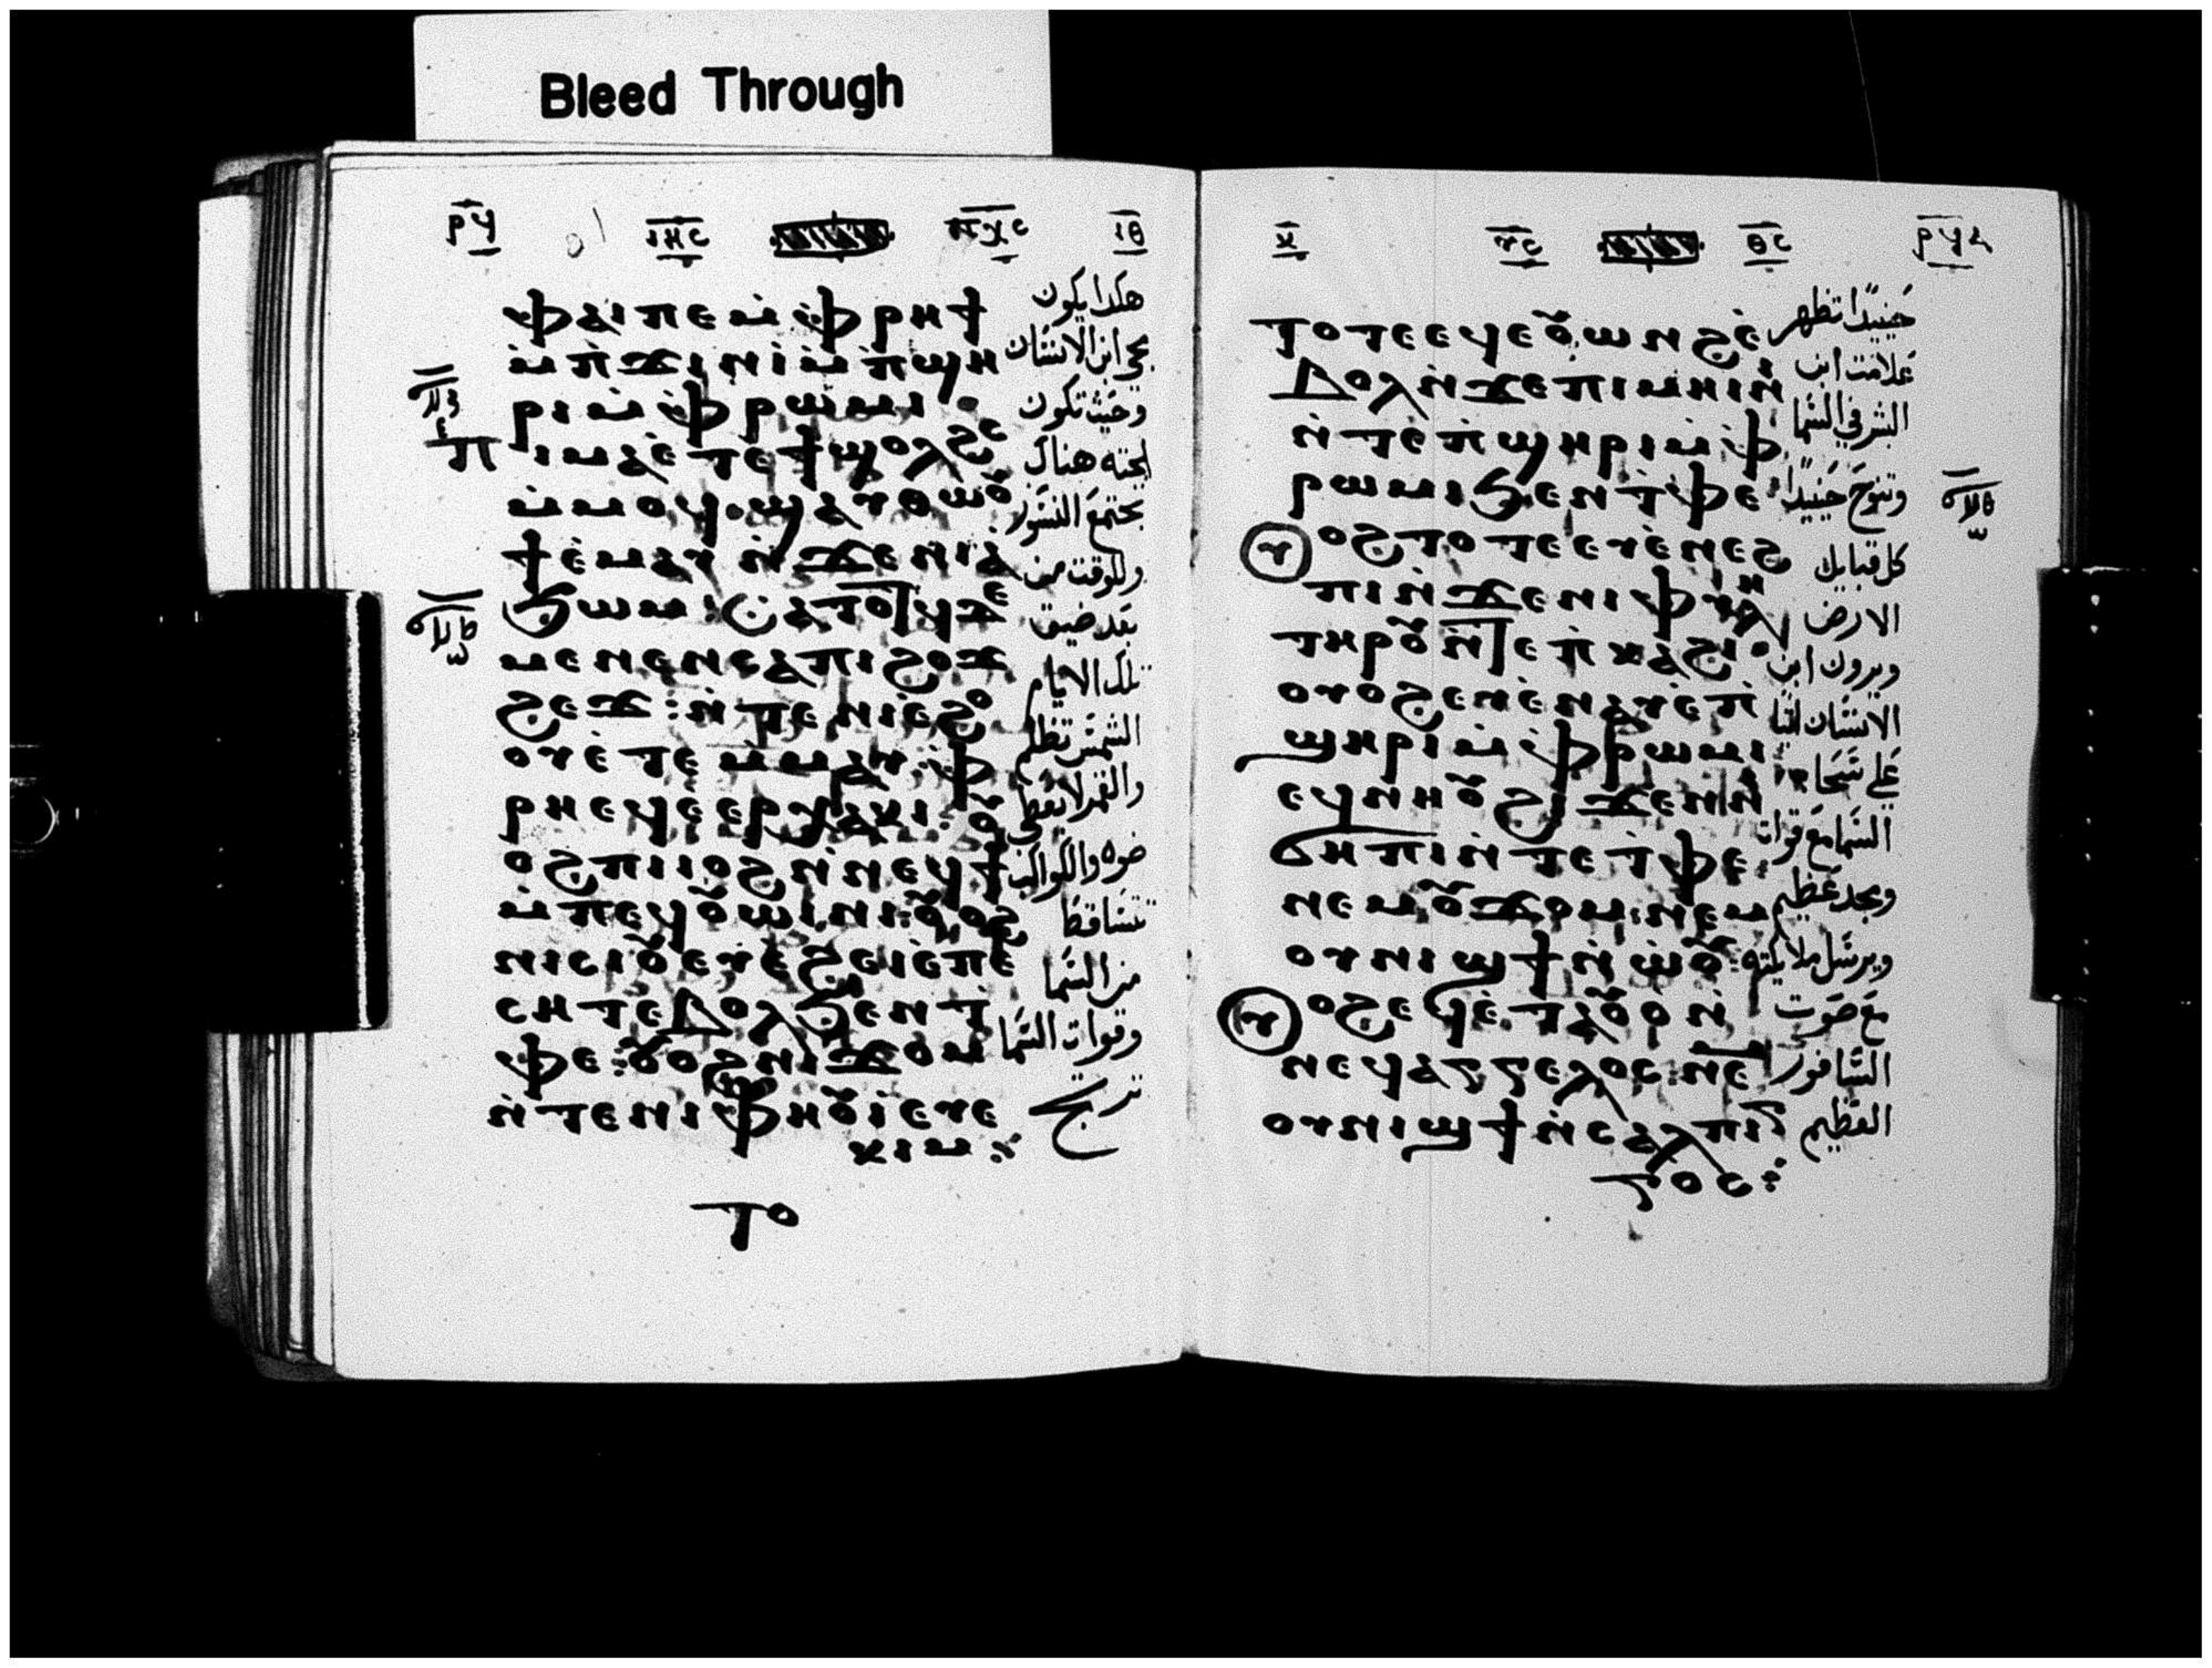 Bleed Through
ⲣϥ ⲓⲏⲥ ⲡⲭⲥ ⲓⲑ
ⲫⲁⲓⲡⲉⲙ̀ⲫⲣⲏϯ
ⲙ̀ⲡϫⲓⲛⲓ̀ⲙ̀ⲡϣⲏ
ⲣⲓⲙ̀ⲫⲣⲱⲙⲓ
ⲡⲓⲙⲁⲉ̀ⲧⲉϯϣⲟⲗϩⲥ
ⲙ̀ⲙⲟϥ·ϣⲁⲩⲑⲱⲟⲩ
ϯⲉ̀ⲙⲁⲩⲛ̀ϫⲉⲛⲓⲁ
ϧⲱⲙ:ⲥⲁⲧⲟⲧϥϫⲉ
ⲙⲉⲛⲉⲛⲥⲁⲡⲓϩⲟϫ
ϩⲉϫ:ⲛ̀ⲧⲉⲛⲓⲉ̀ϩⲟ
ⲟⲩⲉ̀ⲧⲉⲙ̀ⲙⲁⲩ:ⲫ
ⲣⲏⲉϥⲉ̀ⲉⲣⲭⲁⲕⲓ:ⲟⲩ
ⲟϩⲡⲓⲓⲟϩⲛ̀ⲛⲉϥϯ
ⲙ̀ⲡⲉϥⲟⲩⲱⲓⲛⲓ:ⲟⲩⲟϩ
ⲛⲓⲥⲓⲟⲩⲉⲩⲉ̀ϩⲉⲓⲉ̀ⲡⲉ
ⲥⲏⲧⲉⲃⲟⲗϧⲉⲛⲧ
ⲫⲉ:ⲟⲩⲟϩⲛⲓϫⲟⲙ
ⲛ̀ⲧⲉⲛⲓⲫⲏⲟⲩⲓ̀ⲉⲩⲉ
ⲕⲓⲙ:
ⲧⲟ
هكدا يكون
مجي ابن الانسان
وحيث تكون
الجثه هناك
تجتمع النسور
وللوقت من
بعد ضيق
تلك الايام
الشمس تظلم
والقمر لا يعطي
ضوه والكواكب
تتساقط
من السما
وقوات السما
ترتج
ⲕ ⲩⲥ ⲑⲥ
ⲧⲟⲧⲉⲉϥⲉⲟⲩⲱⲛϩⲉ̀
ⲃⲟⲗⲛ̀ϫⲉⲡⲓⲙⲏⲓⲛⲓ
ⲛ̀ⲧⲉⲡ̀ϣⲏⲣⲓⲙ̀ⲫ
ⲣⲱⲙⲓϧⲉⲛⲧ̀ⲫⲉ:
ⲟⲩⲟϩⲧⲟⲧⲉⲉⲩⲉ̀ⲛⲉϩ
ⲡⲓⲛ̀ϫⲉⲛⲓⲫⲩⲗⲏ
ⲧⲏⲣⲟⲩⲛ̀ⲧⲉⲡ̀ⲕⲁϩⲓ
ⲟⲩⲟϩⲉⲩⲉ̀ⲛⲁⲩⲉ̀ⲡ
ϣⲏⲣⲓⲙ̀ⲫⲣⲱⲙⲓ
ⲉϥⲛⲏⲟⲩϩⲓϫⲉⲛⲛⲓ
ϭⲏⲡⲓⲛ̀ⲧⲉⲧ̀ⲫⲉ:
ⲛⲉⲙⲟⲩϫⲟⲙ:ⲛⲉⲙ
ⲟⲩⲛⲓϣϯⲛ̀ⲱ̀ⲟⲩ:
ⲟⲩⲟϩⲉϥⲉ̀ⲧⲁⲟⲩⲟⲛ̀
ⲛⲉϥⲁⲅⲅⲉⲗⲟⲥ:ⲛⲉⲙ
ⲟⲩⲛⲓϣϯⲛ̀ⲥⲁⲗⲡⲓⲅ
ⲅⲟⲥ:
حينيدا تظهر
علامت ابن
البشر في السما
وتنوح حينيدا
كل قبايل
الارض
ويرون ابن
الانسان اتيا
على سحاب
السما مع قوات
ومجد عظيم
ويرسل ملايكته
مع صوت
السافور
العظيم